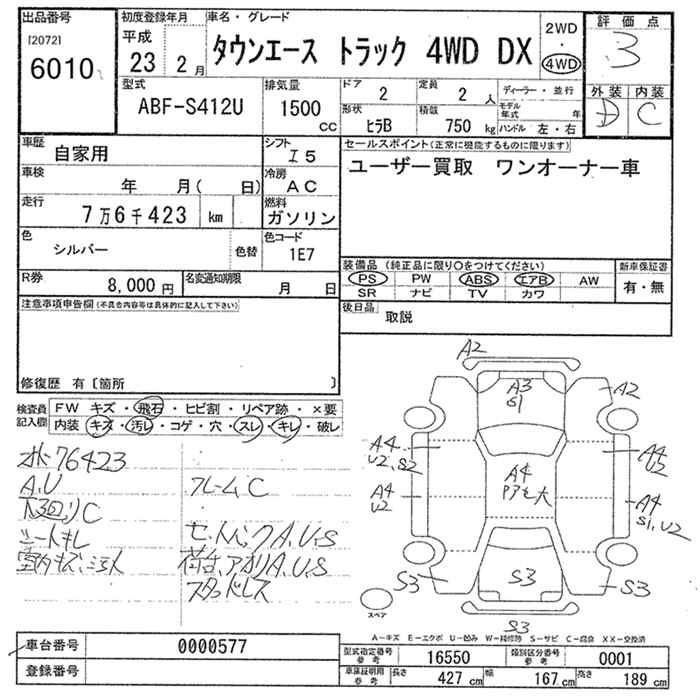 出品番号
[2072]
6010
初度登録年月
平成
23 2月
車名・グレード
タウンエース トラック 4WD DX
2WD
・
4WD
評価点
3
外装 内装
D C
型式
ABF-S412U
排気量
1500
CC
ドア
2
定員
2 人
形状
ヒラB
積載
750 kg
ディーラー・並行
モデル年式 年
ハンドル 左・右
車歴
自家用
シフト
I5
車検
年 月( 日)
冷房
AC
走行
7万6千423 km
燃料
ガソリン
色
シルバー
色替
色コード
1E7
R券
8,000円
名変通知期限
月 日
セールスポイント(正常に機能するものに限ります)
ユーザー買取 ワンオーナー車
装備品(純正品に限り○をつけてください)
PS PW ABS エアB AW
SR ナビ TV カワ
新車保証書
有・無
後日品
取説
注意事項申告欄(不具合内容等は具体的に記入して下さい)
修復歴 有〔箇所 〕
検査員
記入欄
FW キズ・飛石・ヒビ割・リペア跡・×要
内装 キズ・汚レ・コゲ・穴・スレ・キレ・破レ
76423
A,U
下回りC
シートキレ
フレームC
A,U,S
荷台,アオリA,U,S
スタッドレス
A2
A3
S1
A2
A4
U2,S2
A4
U2
A4
A4
U2
A4
S1,U2
S3
S3
S3
S3
スペア
A-キズ E-エクボ U-凹み W-補修跡 S-サビ C-腐食 XX-交換済
車台番号
0000577
登録番号
型式指定番号
参考
16550
類別区分番号
参考
0001
車庫証明用
参考
長さ
427 cm
幅
167 cm
高さ
189 cm